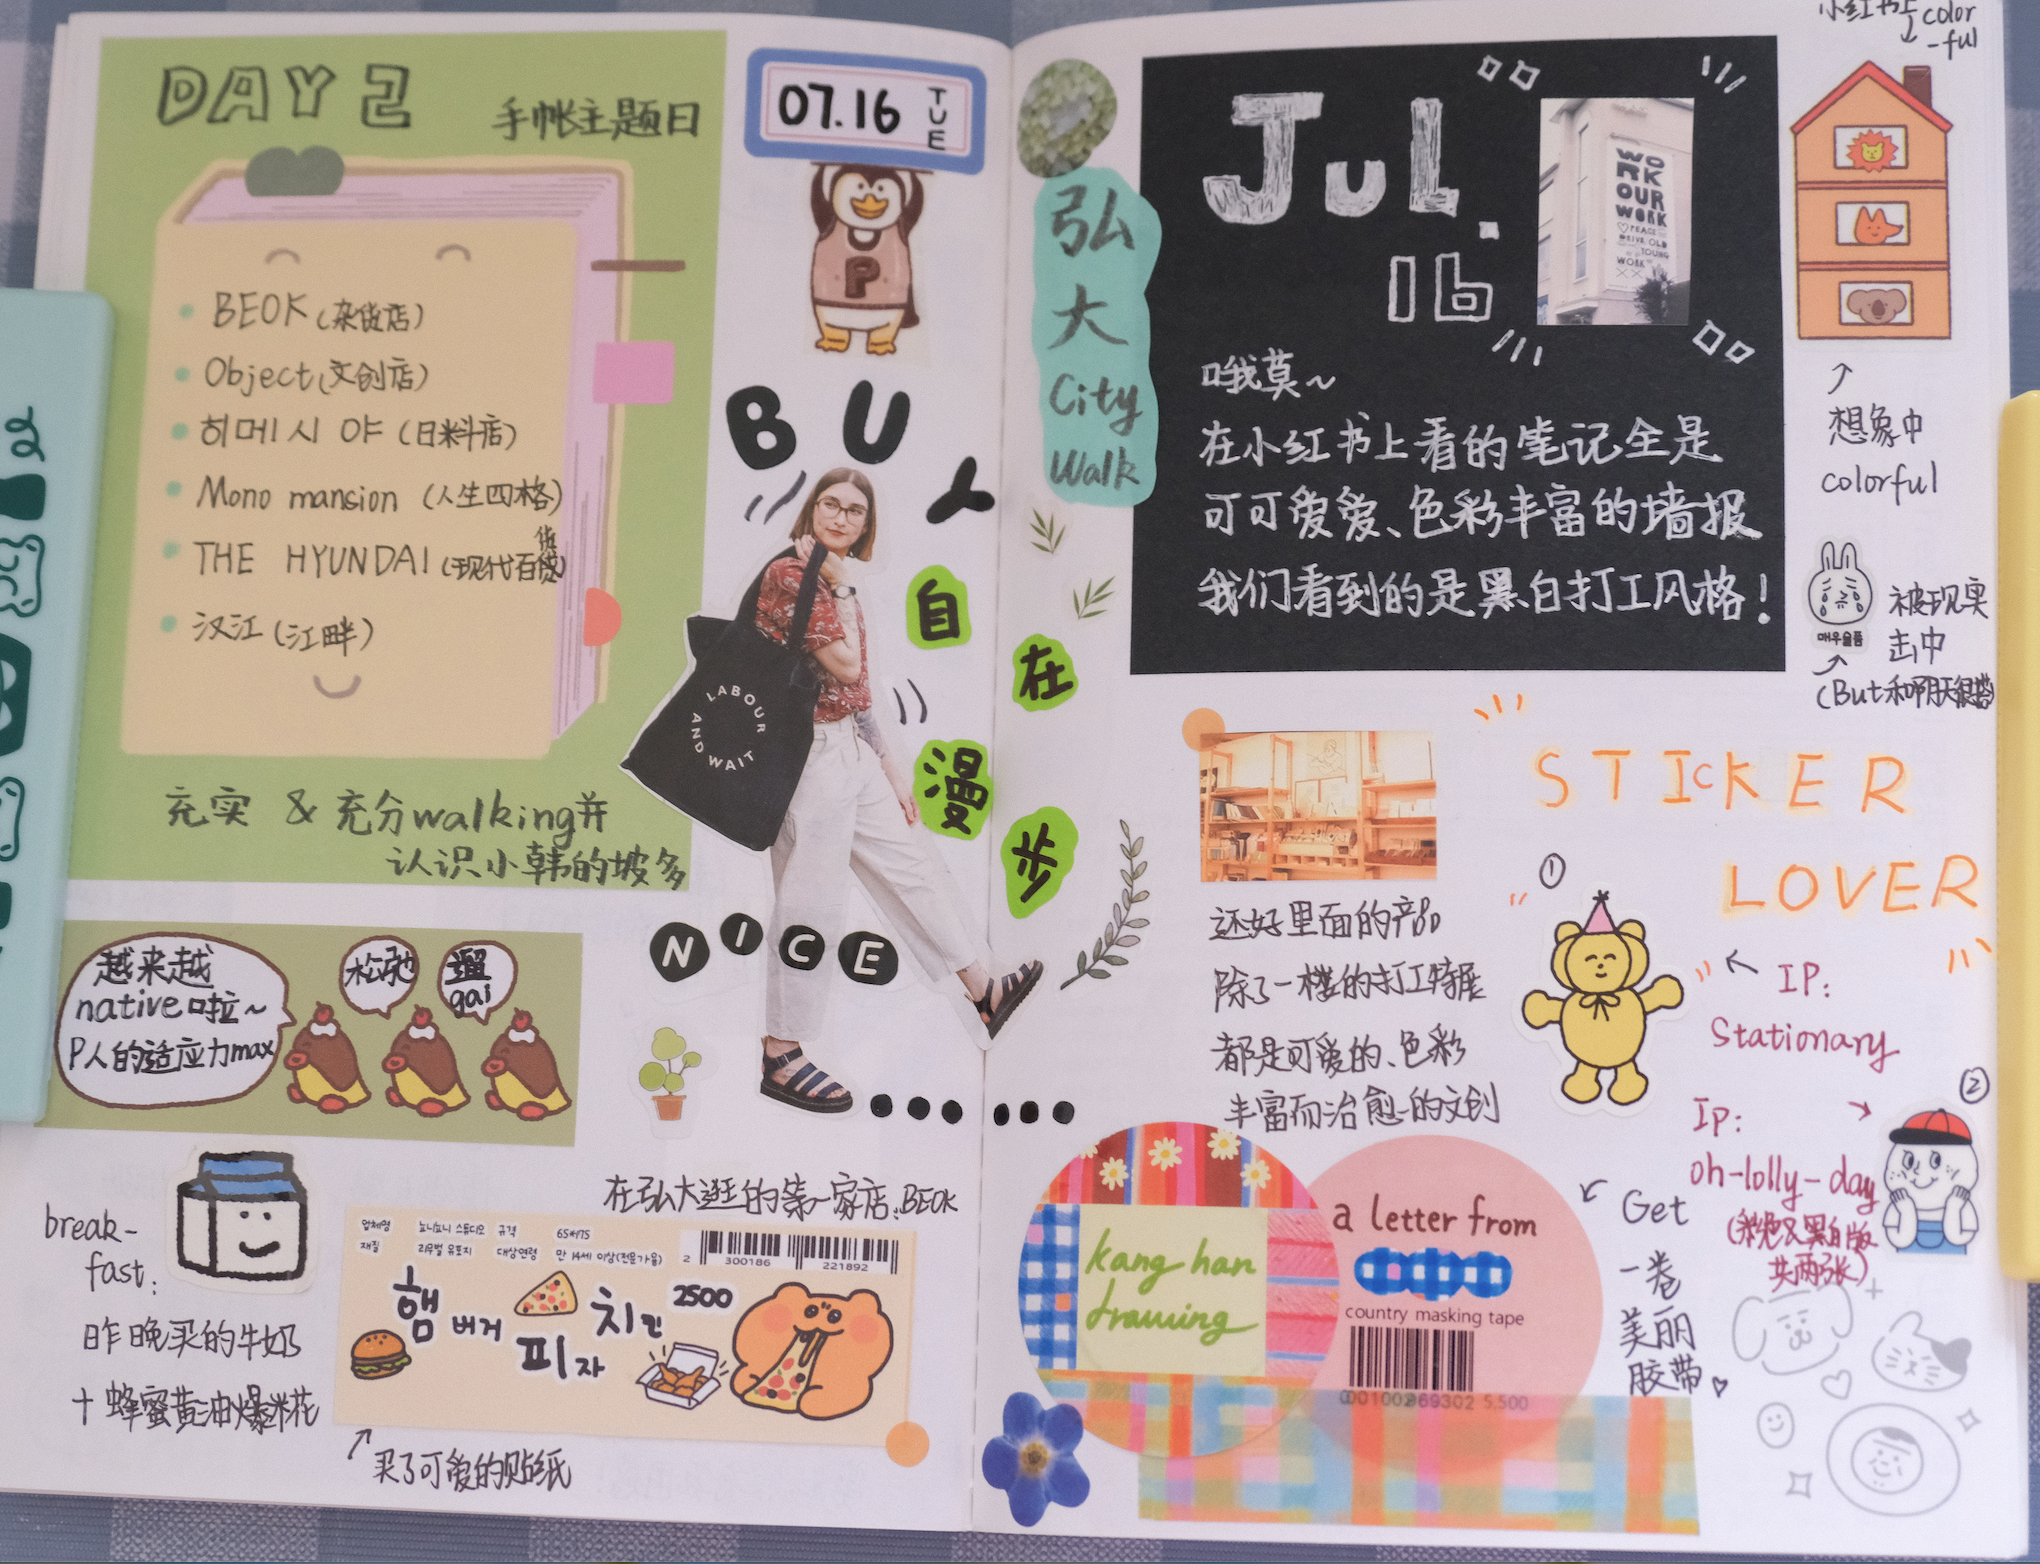 DAY 2
手帐主题日
BEOK (杂货店)
Object (文创店)
히메시야 (日料店)
Mono mansion (人生四格)
货
THE HYUNDAI (现代百货)
汉江 (江畔)
充实 & 充分walking并
认识小韩的坡多
07.16 TUE
P
BUY
LABOUR AND WAIT
自在漫步
NICE
越来越
native啦~
P人的适应力max
松弛
遛
gai
break-
fast:
昨晚买的牛奶
+ 蜂蜜黄油爆米花
在弘大逛的第一家店:BEOK
업체명 뇨니뇨니 스튜디오 규격 65*175
재질 리무벌 유포지 대상연령 만 14세 이상(전문가용)
2 300186 221892
2500
햄버거
피자
치킨
买了可爱的贴纸
弘
大
City
Walk
Jul.
16
WO
RK
OUR
WORK
PEACE
DRIVE OLD
YOUNG
WORK
哦莫~
在小红书上看的笔记全是
可可爱爱、色彩丰富的墙报
我们看到的是黑白打工风格!
小红书上
color
-ful
想象中
colorful
매우슬픔
被现实
击中
(But和阴天很搭)
STICKER
LOVER
还好里面的产品
除了一楼的打工特展
都是可爱的、色彩
丰富而治愈的文创
①
IP:
Stationary
②
Ip:
oh-lolly-day
(彩色及黑白版
共两张)
kang han
drawing
a letter from
country masking tape
001002969302 5.500
Get
一卷
美丽
胶带